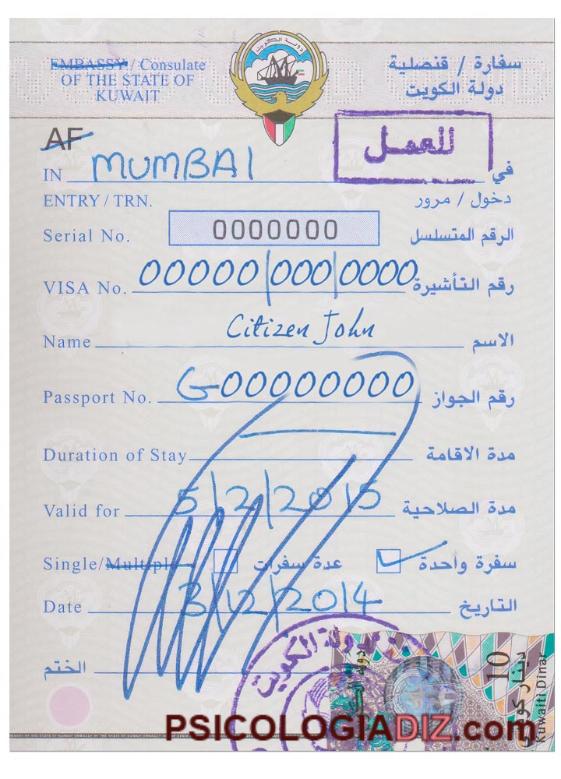 EMBASSY / Consulate سفارة / قنصلية
OF THE STATE OF دولة الكويت
KUWAIT
دولة الكويت
AF للعمل
IN MUMBAI في
ENTRY / TRN. دخول / مرور
Serial No. 0000000 الرقم المتسلسل
VISA No. 00000/000/0000 رقم التأشيرة
Name Citizen John الاسم
Passport No. G00000000 رقم الجواز
Duration of Stay مدة الاقامة
Valid for 5/2/2015 مدة الصلاحية
Single/Multiple عدة سفرات سفرة واحدة
Date 3/12/2014 التاريخ
الختم
دولة الكويت
10
دينار كويتي
Kuwaiti Dinar
PSICOLOGIADIZ.com